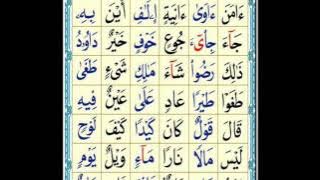 ءَامَنَ ءَاوَىٰ ءَانِيَةٍ إِۦلَٰفِ أَيْنَ بِهِۦ
جَآءَ جِا۟يٓءَ جُوعٍ خَوْفٍ خَيْرٌ دَاوُۥدَ
ذَٰلِكَ رَضُوا۟ شَآءَ مَٰلِكِ شَيْءٍ طَغَىٰ
طَغَوْا۟ طَيْرًا عَادٍ عَلَىٰ عَيْنٌ فِيهِ
قَالَ قَوْلٌ كَانَ كَيْدًا كَيْفَ لَوْحٍ
لَيْسَ مَالًا نَارًا مَآءٍ وَيْلٌ يَوْمٍ